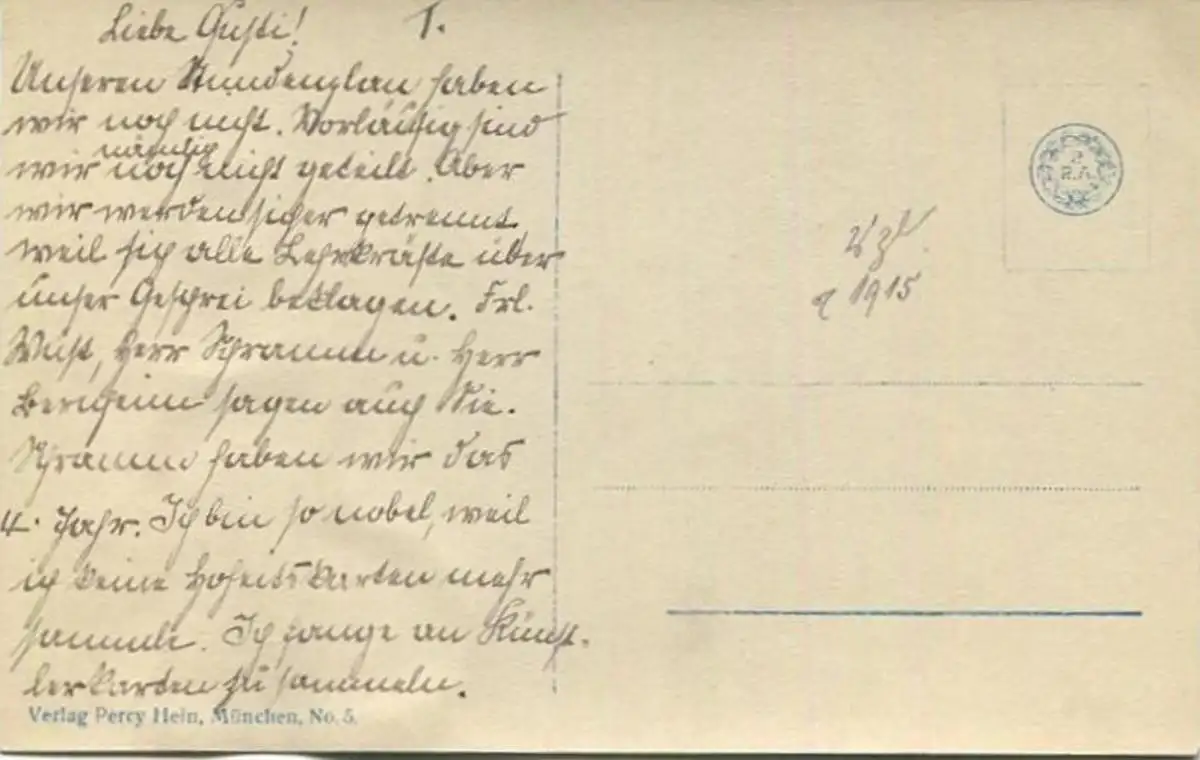 Liebe Gusti! I.
Unseren Stundenplan haben
wir noch nicht. Vorläufig sind
nämlich
wir noch nicht geteilt. Aber
wir werden sicher getrennt,
weil sich alle Lehrkräfte über
unser Geschrei beklagen. Frl.
Wüst, Herr Schramm u. Herr
Bernheim sagen auch Sie.
Schramm haben wir das
4. Jahr. Ich bin so nobel, weil
ich keine Hoheitskarten mehr
sammle. Ich fange an Künst-
lerkarten zu sammeln.
Verlag Percy Hein, München, No. 5.
1915